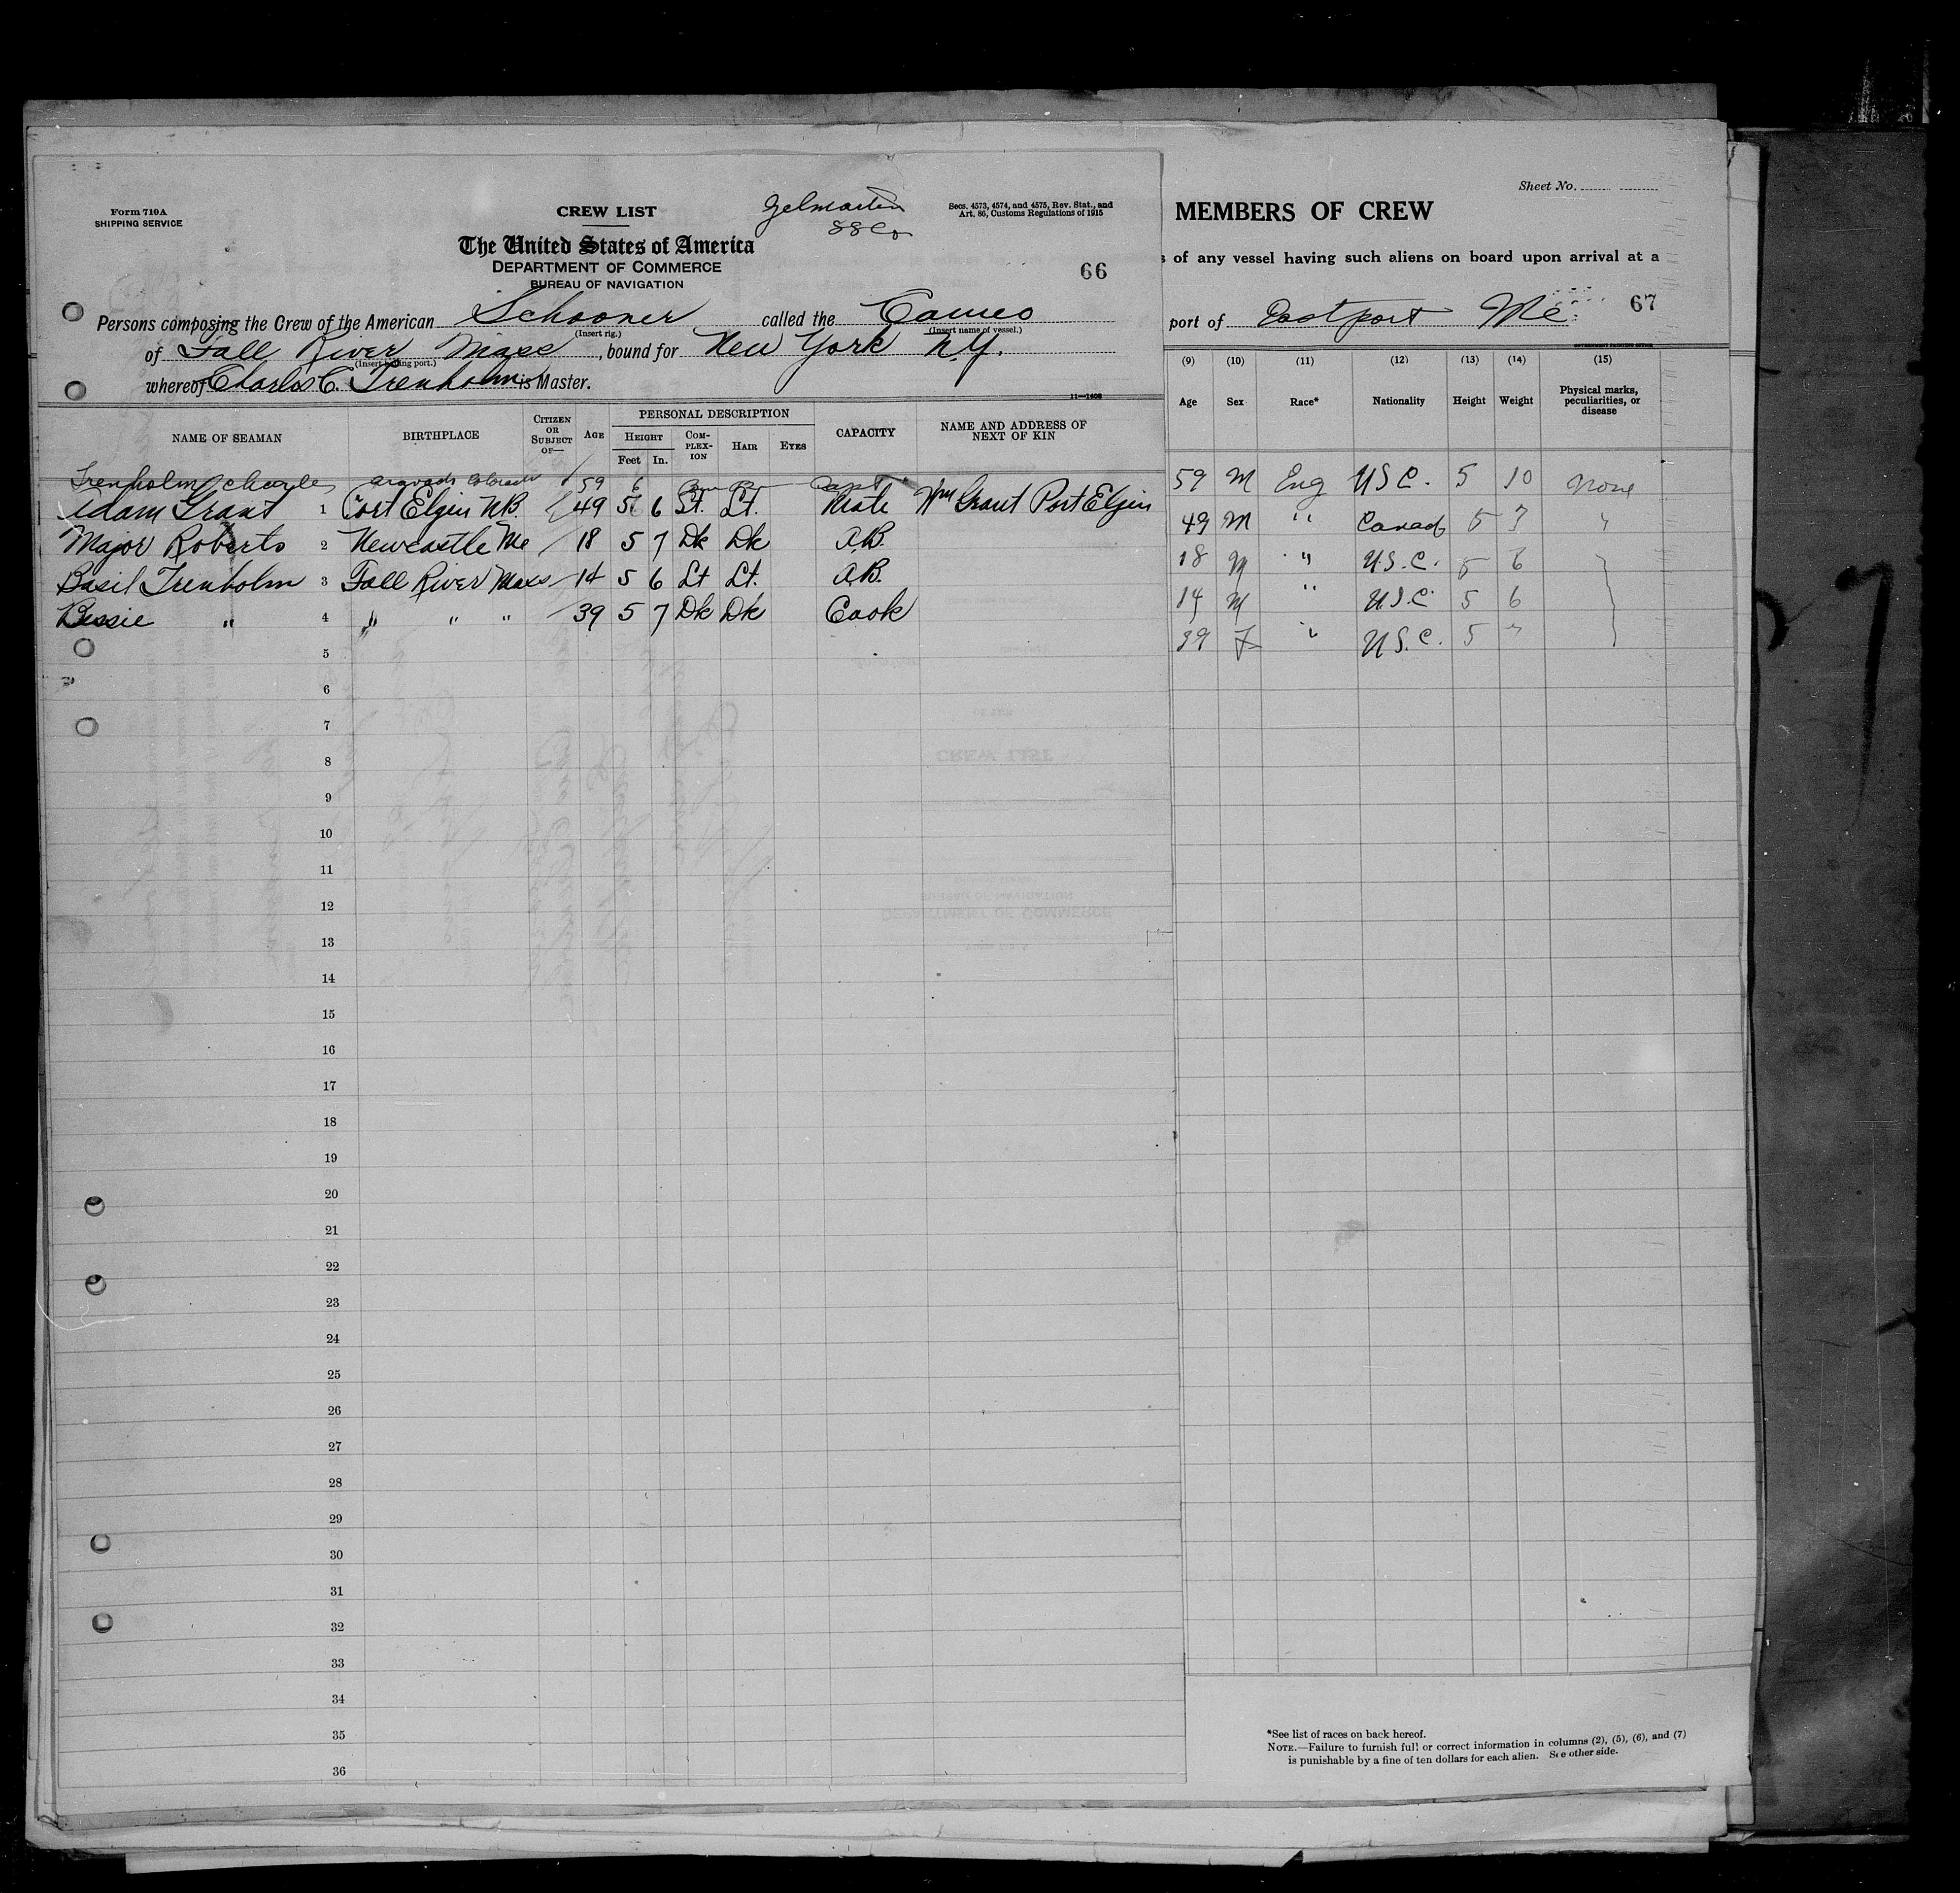 Form 710A
SHIPPING SERVICE
CREW LIST
Secs. 4573, 4574, and 4575, Rev. Stat., and
Art. 86, Customs Regulations of 1915
The United States of America
DEPARTMENT OF COMMERCE
BUREAU OF NAVIGATION
66
Persons composing the Crew of the American Schooner called the Cameo
(Insert rig.) (Insert name of vessel.)
of Fall River Mass, bound for New York N.Y.
(Insert hailing port.)
whereof Charles C. Trenholm is Master.
11—1408
NAME OF SEAMAN BIRTHPLACE CITIZEN OR SUBJECT OF— AGE PERSONAL DESCRIPTION CAPACITY NAME AND ADDRESS OF NEXT OF KIN
HEIGHT COMPLEXION HAIR EYES
Feet In.
Trenholm Charles Colorado 59 6 Capt
Adam Grant 1 Port Elgin NB 49 5 6 Lt. Lt. Mate Wm Grant Port Elgin
Major Roberts 2 Newcastle Me 18 5 7 Dk Dk A.B.
Basil Trenholm 3 Fall River Mass 14 5 6 Lt Lt. A.B.
Bessie " 4 " " " 39 5 7 Dk Dk Cook
5
6
7
8
9
10
11
12
13
14
15
16
17
18
19
20
21
22
23
24
25
26
27
28
29
30
31
32
33
34
35
36
Sheet No.
MEMBERS OF CREW
s of any vessel having such aliens on board upon arrival at a
port of Eastport Me. 67
(9) (10) (11) (12) (13) (14) (15)
Age Sex Race* Nationality Height Weight Physical marks, peculiarities, or disease
59 M Eng U S C. 5 10 None
49 M " Canada 5 7 "
18 M " U.S.C. 5 6
14 M " U.S.C. 5 6
39 F " U.S.C. 5 7
*See list of races on back hereof.
NOTE.—Failure to furnish full or correct information in columns (2), (5), (6), and (7)
is punishable by a fine of ten dollars for each alien. See other side.